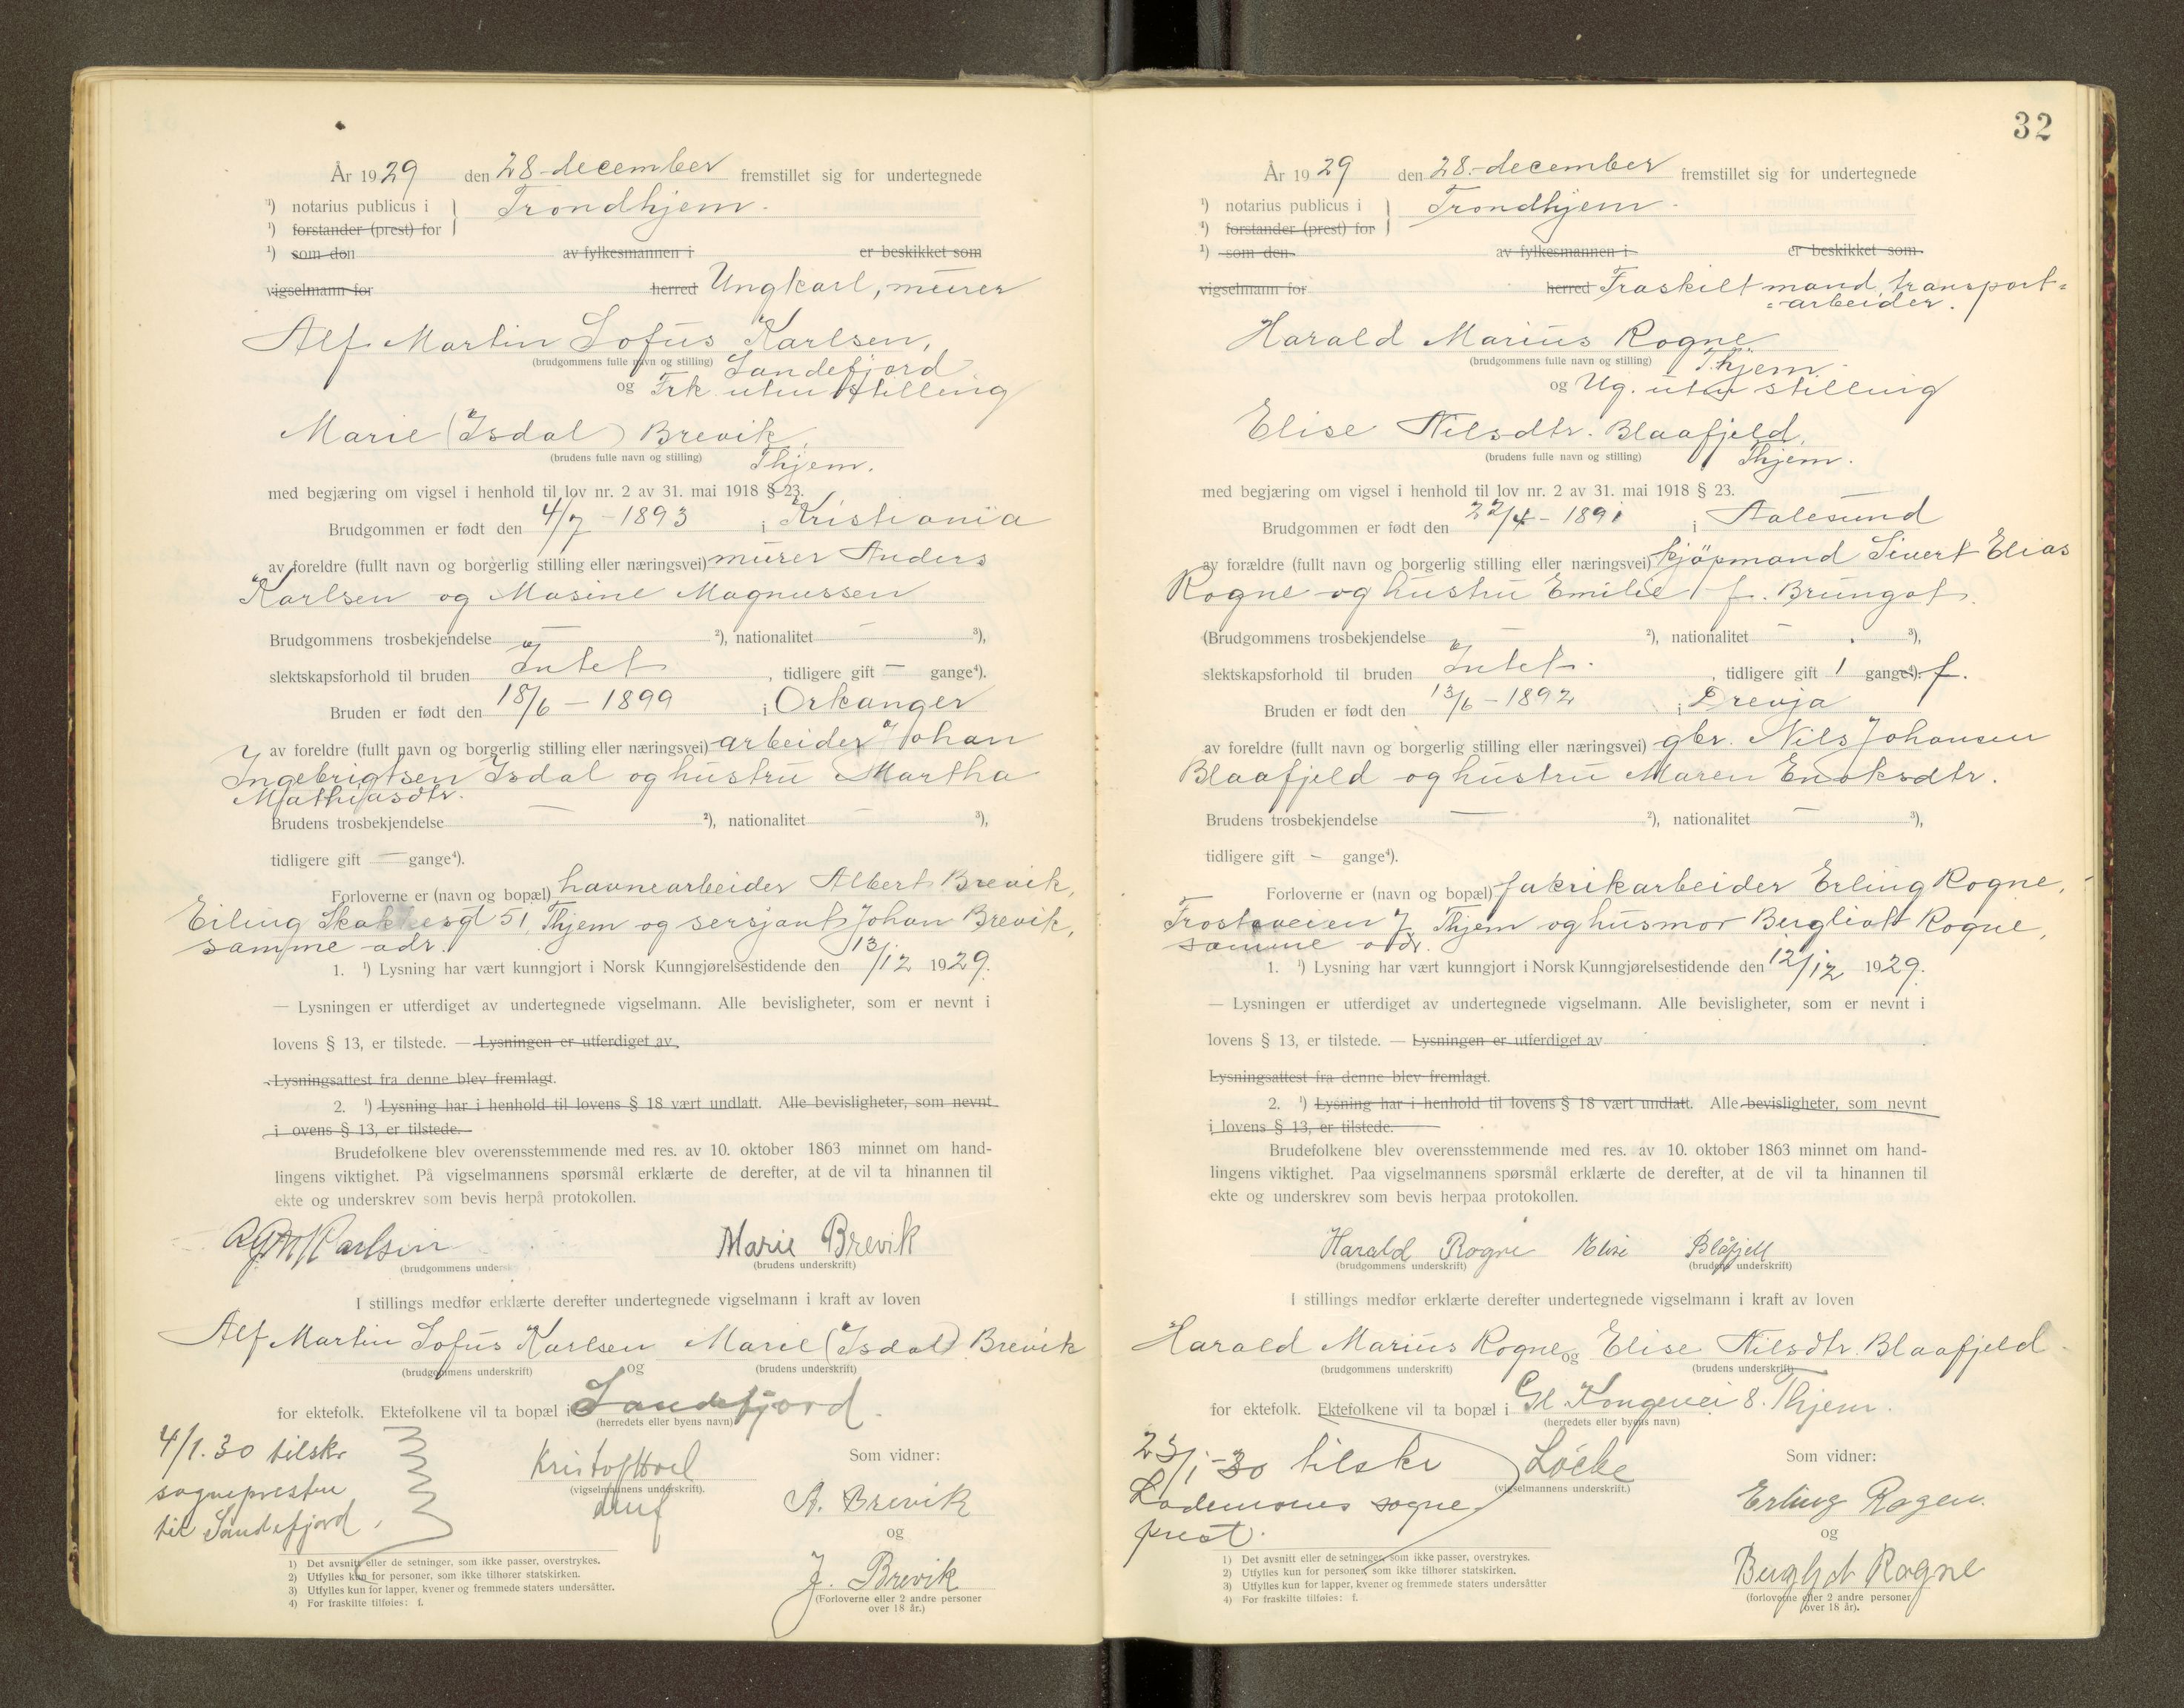 År 1929 den 28-december fremstillet sig for undertegnede
¹) notarius publicus i } Trondhjem.
¹) forstander (prest) for
¹) som den av fylkesmannen i er beskikket som
vigselmann for herred Ungkarl, murer
Alf Martin Sofus Karlsen,
(brudgommens fulle navn og stilling) Sandefjord
og Frk. uten stilling
Marie (Isdal) Brevik,
(brudens fulle navn og stilling) Thjem.
med begjæring om vigsel i henhold til lov nr. 2 av 31. mai 1918 § 23.
Brudgommen er født den 4/7 - 1893 i Kristiania
av foreldre (fullt navn og borgerlig stilling eller næringsvei) murer Anders
Karlsen og Masine Magnussen
Brudgommens trosbekjendelse — ²), nationalitet — ³),
slektskapsforhold til bruden Intet , tidligere gift — gange⁴).
Bruden er født den 18/6 - 1899 i Orkanger
av foreldre (fullt navn og borgerlig stilling eller næringsvei) arbeider Johan
Ingebrigtsen Isdal og hustru Martha
Mathiasdtr.
Brudens trosbekjendelse — ²), nationalitet — ³),
tidligere gift — gange⁴).
Forloverne er (navn og bopæl) havnearbeider Albert Brevik,
Eiling Skakkesgt 51, Thjem og sersjant Johan Brevik,
samme adr.
1. ¹) Lysning har vært kunngjort i Norsk Kunngjørelsestidende den 13/12 1929.
— Lysningen er utferdiget av undertegnede vigselmann. Alle bevisligheter, som er nevnt i
lovens § 13, er tilstede. — Lysningen er utferdiget av
Lysningsattest fra denne blev fremlagt.
2. ¹) Lysning har i henhold til lovens § 18 vært undlatt. Alle bevisligheter, som nevnt
i ovens § 13, er tilstede.
Brudefolkene blev overensstemmende med res. av 10. oktober 1863 minnet om hand-
lingens viktighet. På vigselmannens spørsmål erklærte de derefter, at de vil ta hinannen til
ekte og underskrev som bevis herpå protokollen.
Karlsen Marie Brevik
(brudgommens undersk (brudens underskrift)
I stillings medfør erklærte derefter undertegnede vigselmann i kraft av loven
Alf Martin Sofus Karlsen og Marie (Isdal) Brevik
(brudgommens underskrift) (brudens underskrift)
for ektefolk. Ektefolkene vil ta bopæl i Sandefjord.
(herredets eller byens navn)
4/1.30 tilskr
sognepresten
til Sandefjord.
Kristof
(vigselmannens underskrift).
Som vidner:
A. Brevik
og
J. Brevik
(Forloverne eller 2 andre personer
over 18 år.)
1) Det avsnitt eller de setninger, som ikke passer, overstrykes.
2) Utfylles kun for personer, som ikke tilhører statskirken.
3) Utfylles kun for lapper, kvener og fremmede staters undersåtter.
4) For fraskilte tilføies: f.
32
År 1929 den 28.-december fremstillet sig for undertegnede
¹) notarius publicus i } Trondhjem.
¹) forstander (prest) for
¹) som den av fylkesmannen i er beskikket som
vigselmann for herred Fraskilt mand, transport=
=arbeider.
Harald Marius Rogne
(brudgommens fulle navn og stilling) Thjem
og Ug. uten stilling
Elise Nilsdtr. Blaafjeld,
(brudens fulle navn og stilling) Thjem.
med begjæring om vigsel i henhold til lov nr. 2 av 31. mai 1918 § 23.
Brudgommen er født den 22/4 - 1891 i Aalesund
av forældre (fullt navn og borgerlig stilling eller næringsvei) kjøpmand Sivert Elias
Rogne og hustru Emilie f. Brungot.
(Brudgommens trosbekjendelse — ²), nationalitet — ³),
slektskapsforhold til bruden Intet. , tidligere gift 1 gange⁴). f.
Bruden er født den 13/6 - 1892 i Drevja
av foreldre (fullt navn og borgerlig stilling eller næringsvei) gbr. Nils Johansen
Blaafjeld og hustru Maren Enoksdtr.
Brudens trosbekjendelse — ²), nationalitet — ³),
tidligere gift — gange⁴).
Forloverne er (navn og bopæl) fabrikarbeider Erling Rogne,
Frostaveien 7, Thjem og husmor Bergliot Rogne,
samme adr.
1. ¹) Lysning har vært kunngjort i Norsk Kunngjørelsestidende den 12/12 1929.
— Lysningen er utferdiget av undertegnede vigselmann. Alle bevisligheter, som er nevnt i
lovens § 13, er tilstede. — Lysningen er utferdiget av
Lysningsattest fra denne blev fremlagt.
2. ¹) Lysning har i henhold til lovens § 18 vært undlatt. Alle bevisligheter, som nevnt
i lovens § 13, er tilstede.
Brudefolkene blev overensstemmende med res. av 10. oktober 1863 minnet om hand-
lingens viktighet. Paa vigselmannens spørsmål erklærte de derefter, at de vil ta hinannen til
ekte og underskrev som bevis herpaa protokollen.
Harald Rogne Elise Blåfjell
(brudgommens underskrift) (brudens underskrift)
I stillings medfør erklærte derefter undertegnede vigselmann i kraft av loven
Harald Marius Rogne og Elise Nilsdtr. Blaafjeld
(brudgommens underskrift) (brudens underskrift)
for ektefolk. Ektefolkene vil ta bopæl i Gl. Kongevei 8. Thjem.
(herredets eller byens navn)
23/1-30 tilskr
Lademoens sogne
prest.
(vigselmannens underskrift.)
Som vidner:
Erling Rogen.
og
Bergljot Rogne
(forloverne eller 2 andre personer
over 18 år).
1) Det avsnitt eller de setninger, som ikke passer, overstrykes.
2) Utfylles kun for personer, som ikke tilhører statskirken.
3) Utfylles kun for lapper, kvener og fremmede staters undersåtter
4) For fraskilte tilføies: f.